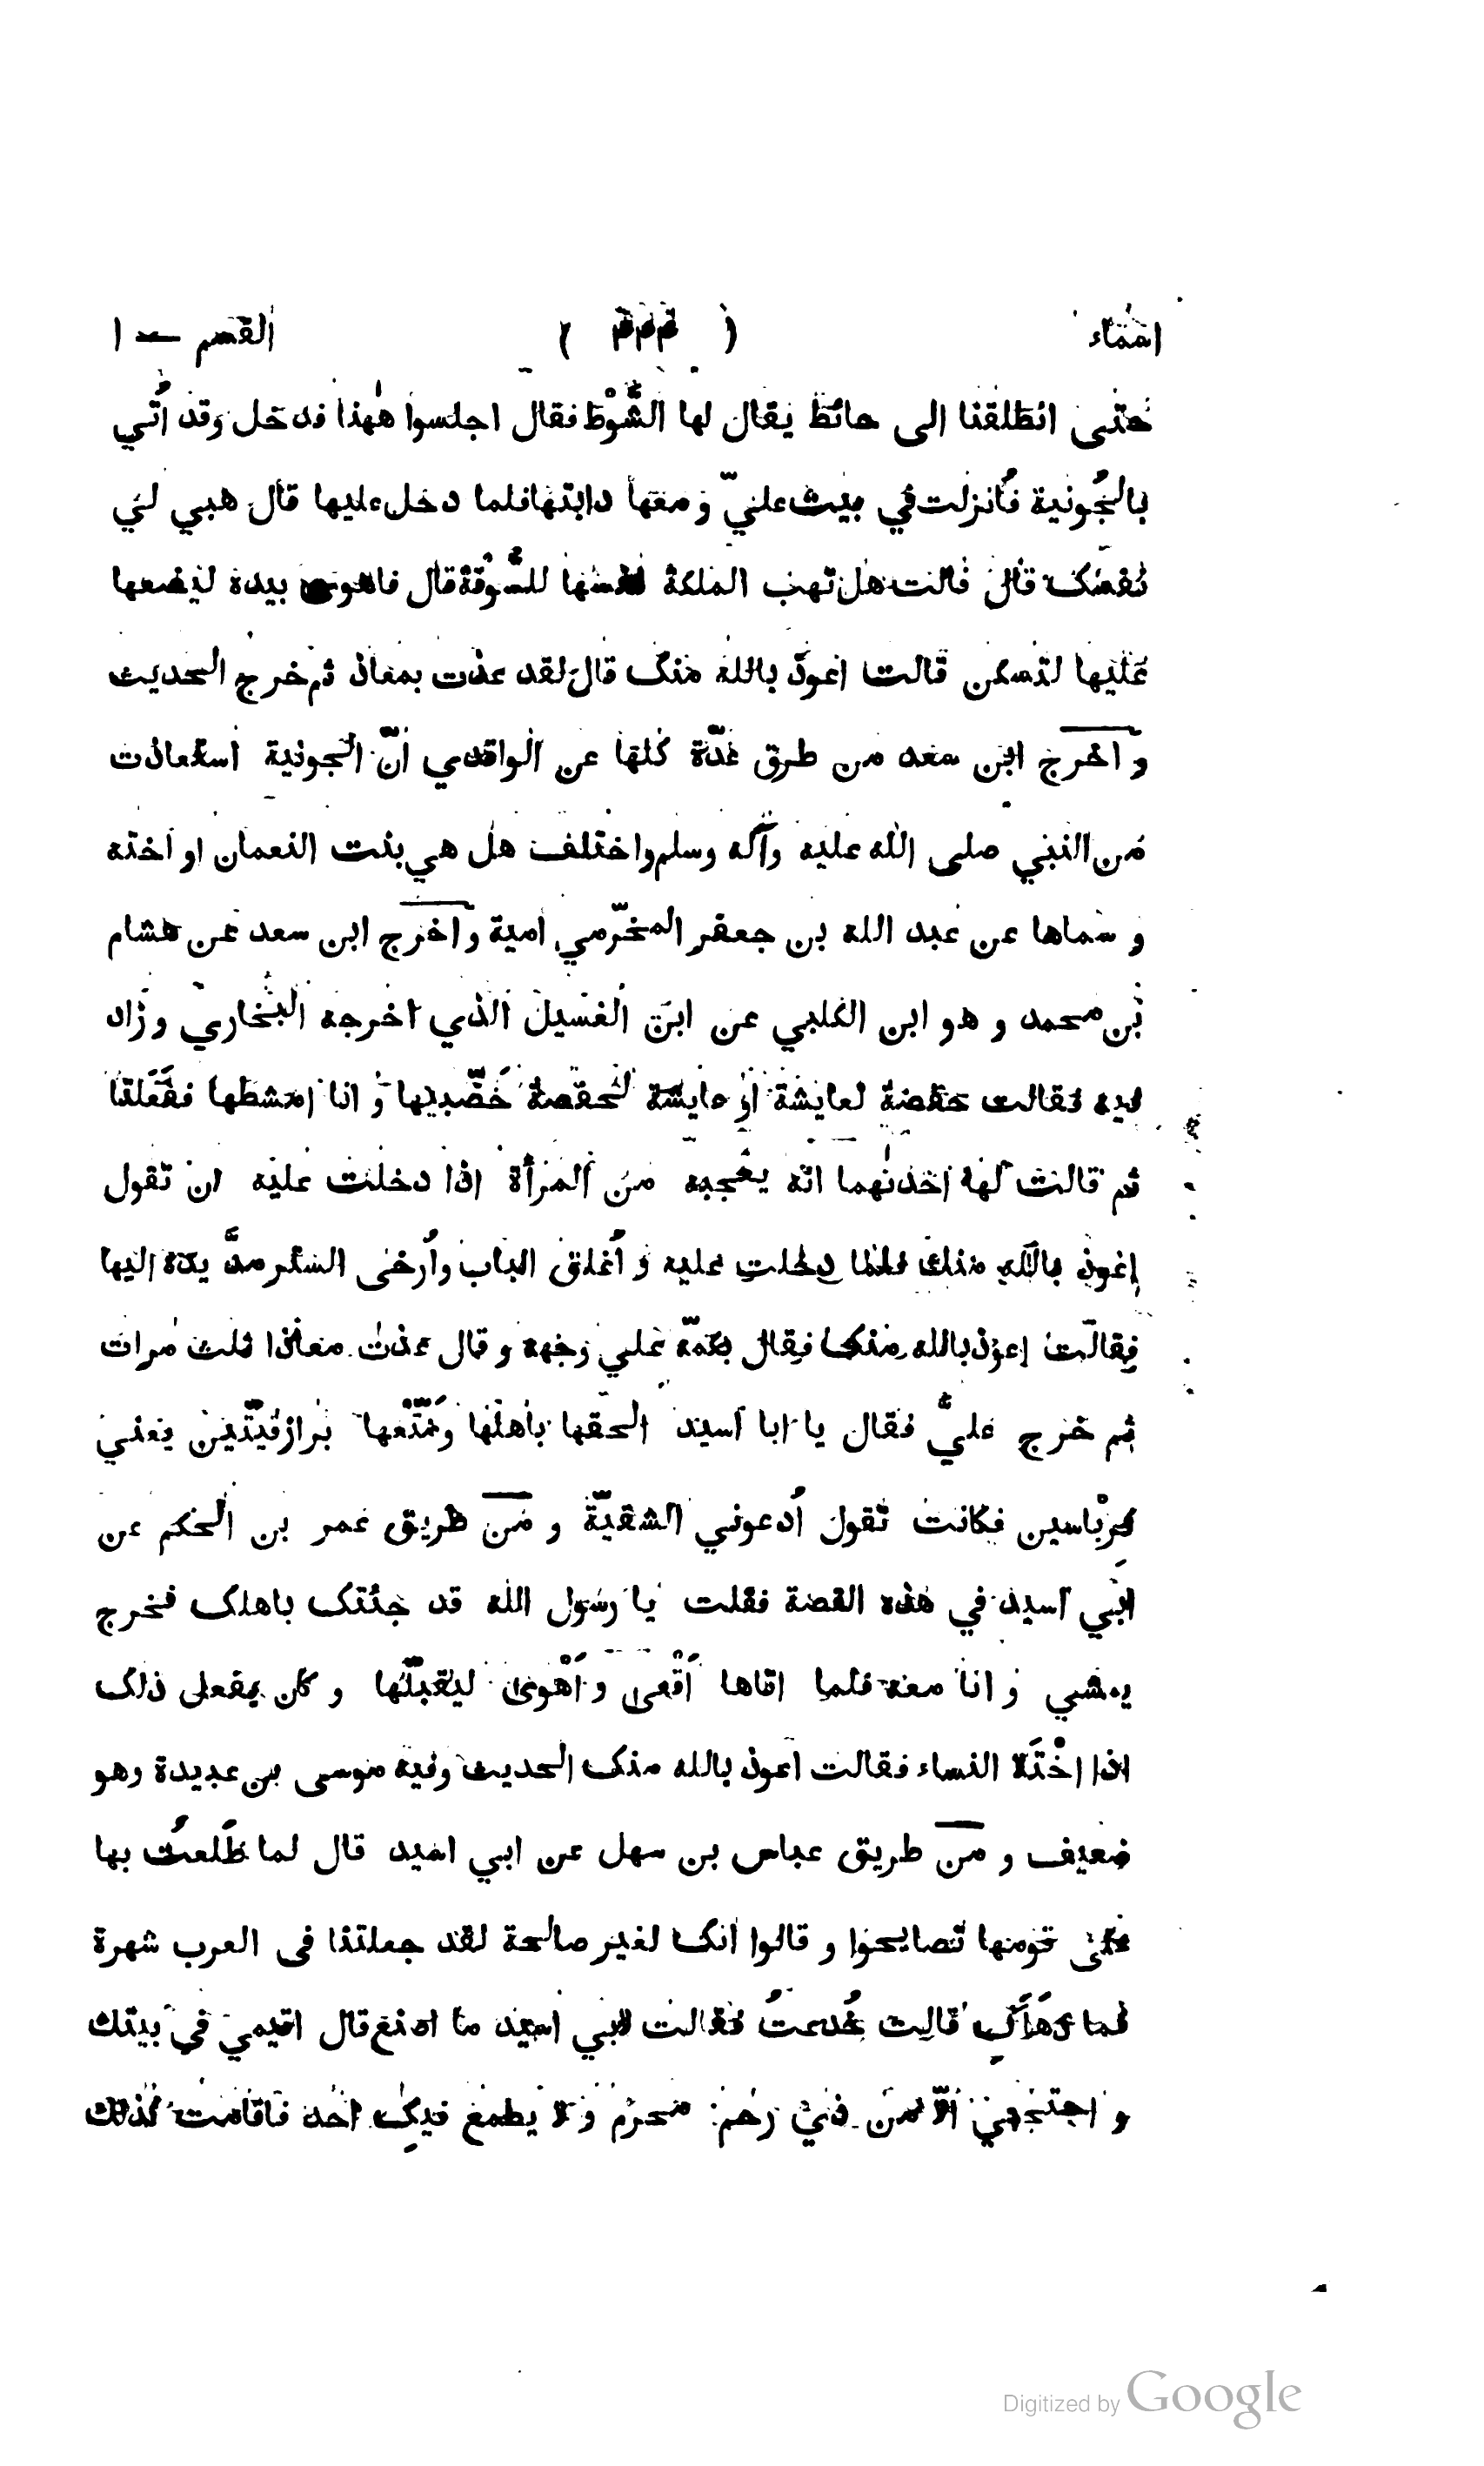 اسماء ( ۴۴۴ ) القسم — ا
حتى انطلقنا الى حائط يقال لها الشَّوْط فقال اجلسوا ههنا فدخل وقد اُتي
بالجُونية فاُنزلت في بيت علىّ و معها دابتها فلما دخل عليها قال هبي لي
نفسك قال قالت هل تهب الملكة نفسها للسُّوْقة قال فاهوى بيده ليضعها
عليها لتسكن قالت اعوذ بالله منك قال لقد عذت بمعاذ ثم خرج الحديث
و اخرج ابن سعد من طرق عدّة كلها عن الواقدي انّ الجونية استعاذت
من النبي صلى الله عليه وآله وسلم واختلف هل هي بنت النعمان او اخته
و سماها عن عبد الله بن جعفر المخرّمي امية و اخرج ابن سعد عن هشام
بن محمد و هو ابن الكلبي عن ابن الغسيل الذي اخرجه البخاري و زاد
فيه فقالت حفصة لعايشة او عايشة لحفصة خضّبيها و انا امشطها ففَعَلتا
ثم قالت لها احدٰهما انه يعجبه من المرأة اذا دخلت عليه ان تقول
اعوذ بالله منك فلما دخلت عليه و اُغلق الباب واُرخى الستر مدّ يده اليها
فقالت اعوذ بالله منك فقال بكمّه على وجهه و قال عذت معاذا ثلث مرات
ثم خرج عليَّ فقال يا ابا اسيد الحقها باهلها ومَتّعها برازقيّتين يعني
كِرْباسين فكانت تقول اُدعوني الشقيّة و من طريق عمر بن الحكم عن
ابي اسيد في هذه القصة فقلت يا رسول الله قد جئتك باهلك فخرج
يمشي و انا معه فلما اتاها اَقْعى و اَهْوى ليُقبّلها و كان يفعل ذلك
اذا اخْتَلا النساء فقالت اعوذ بالله منك الحديث وفيه موسى بن عبيدة وهو
ضعيف و من طريق عباس بن سهل عن ابي اسيد قال لما طَلعتُ بها
على قومها تصايحوا و قالوا انك لغير صالحة لقد جعلتنا فى العرب شهرة
فما دَهَاكِ قالت خُدعتُ فقالت لابي اسيد ما اصنع قال اقيمي في بيتك
و احتجبي الّا من ذي رحم محرم و لا يطمع فيكِ احد فاقامت كذلك
Digitized by Google